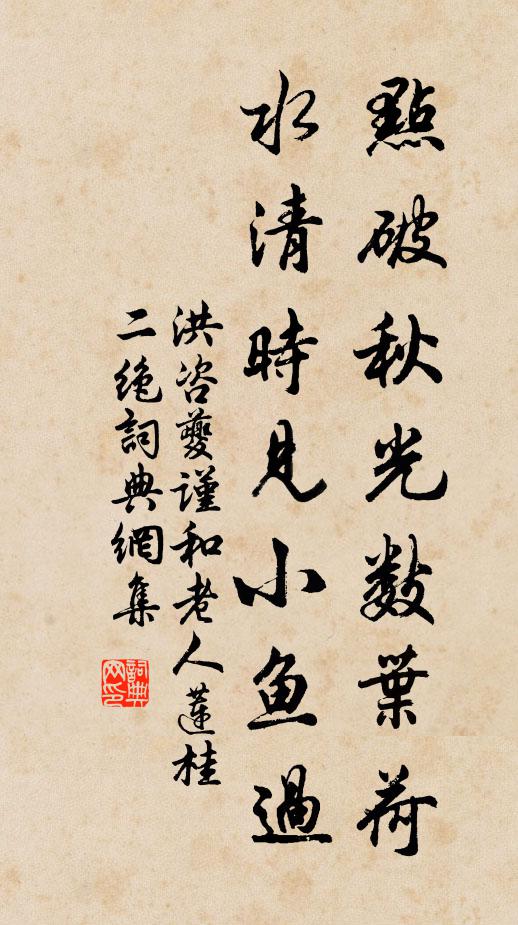 點破秋光數葉荷
水清時見小魚過
洪咨夔謹和老人蓮桂
二绝詞典網集
詞典
网印